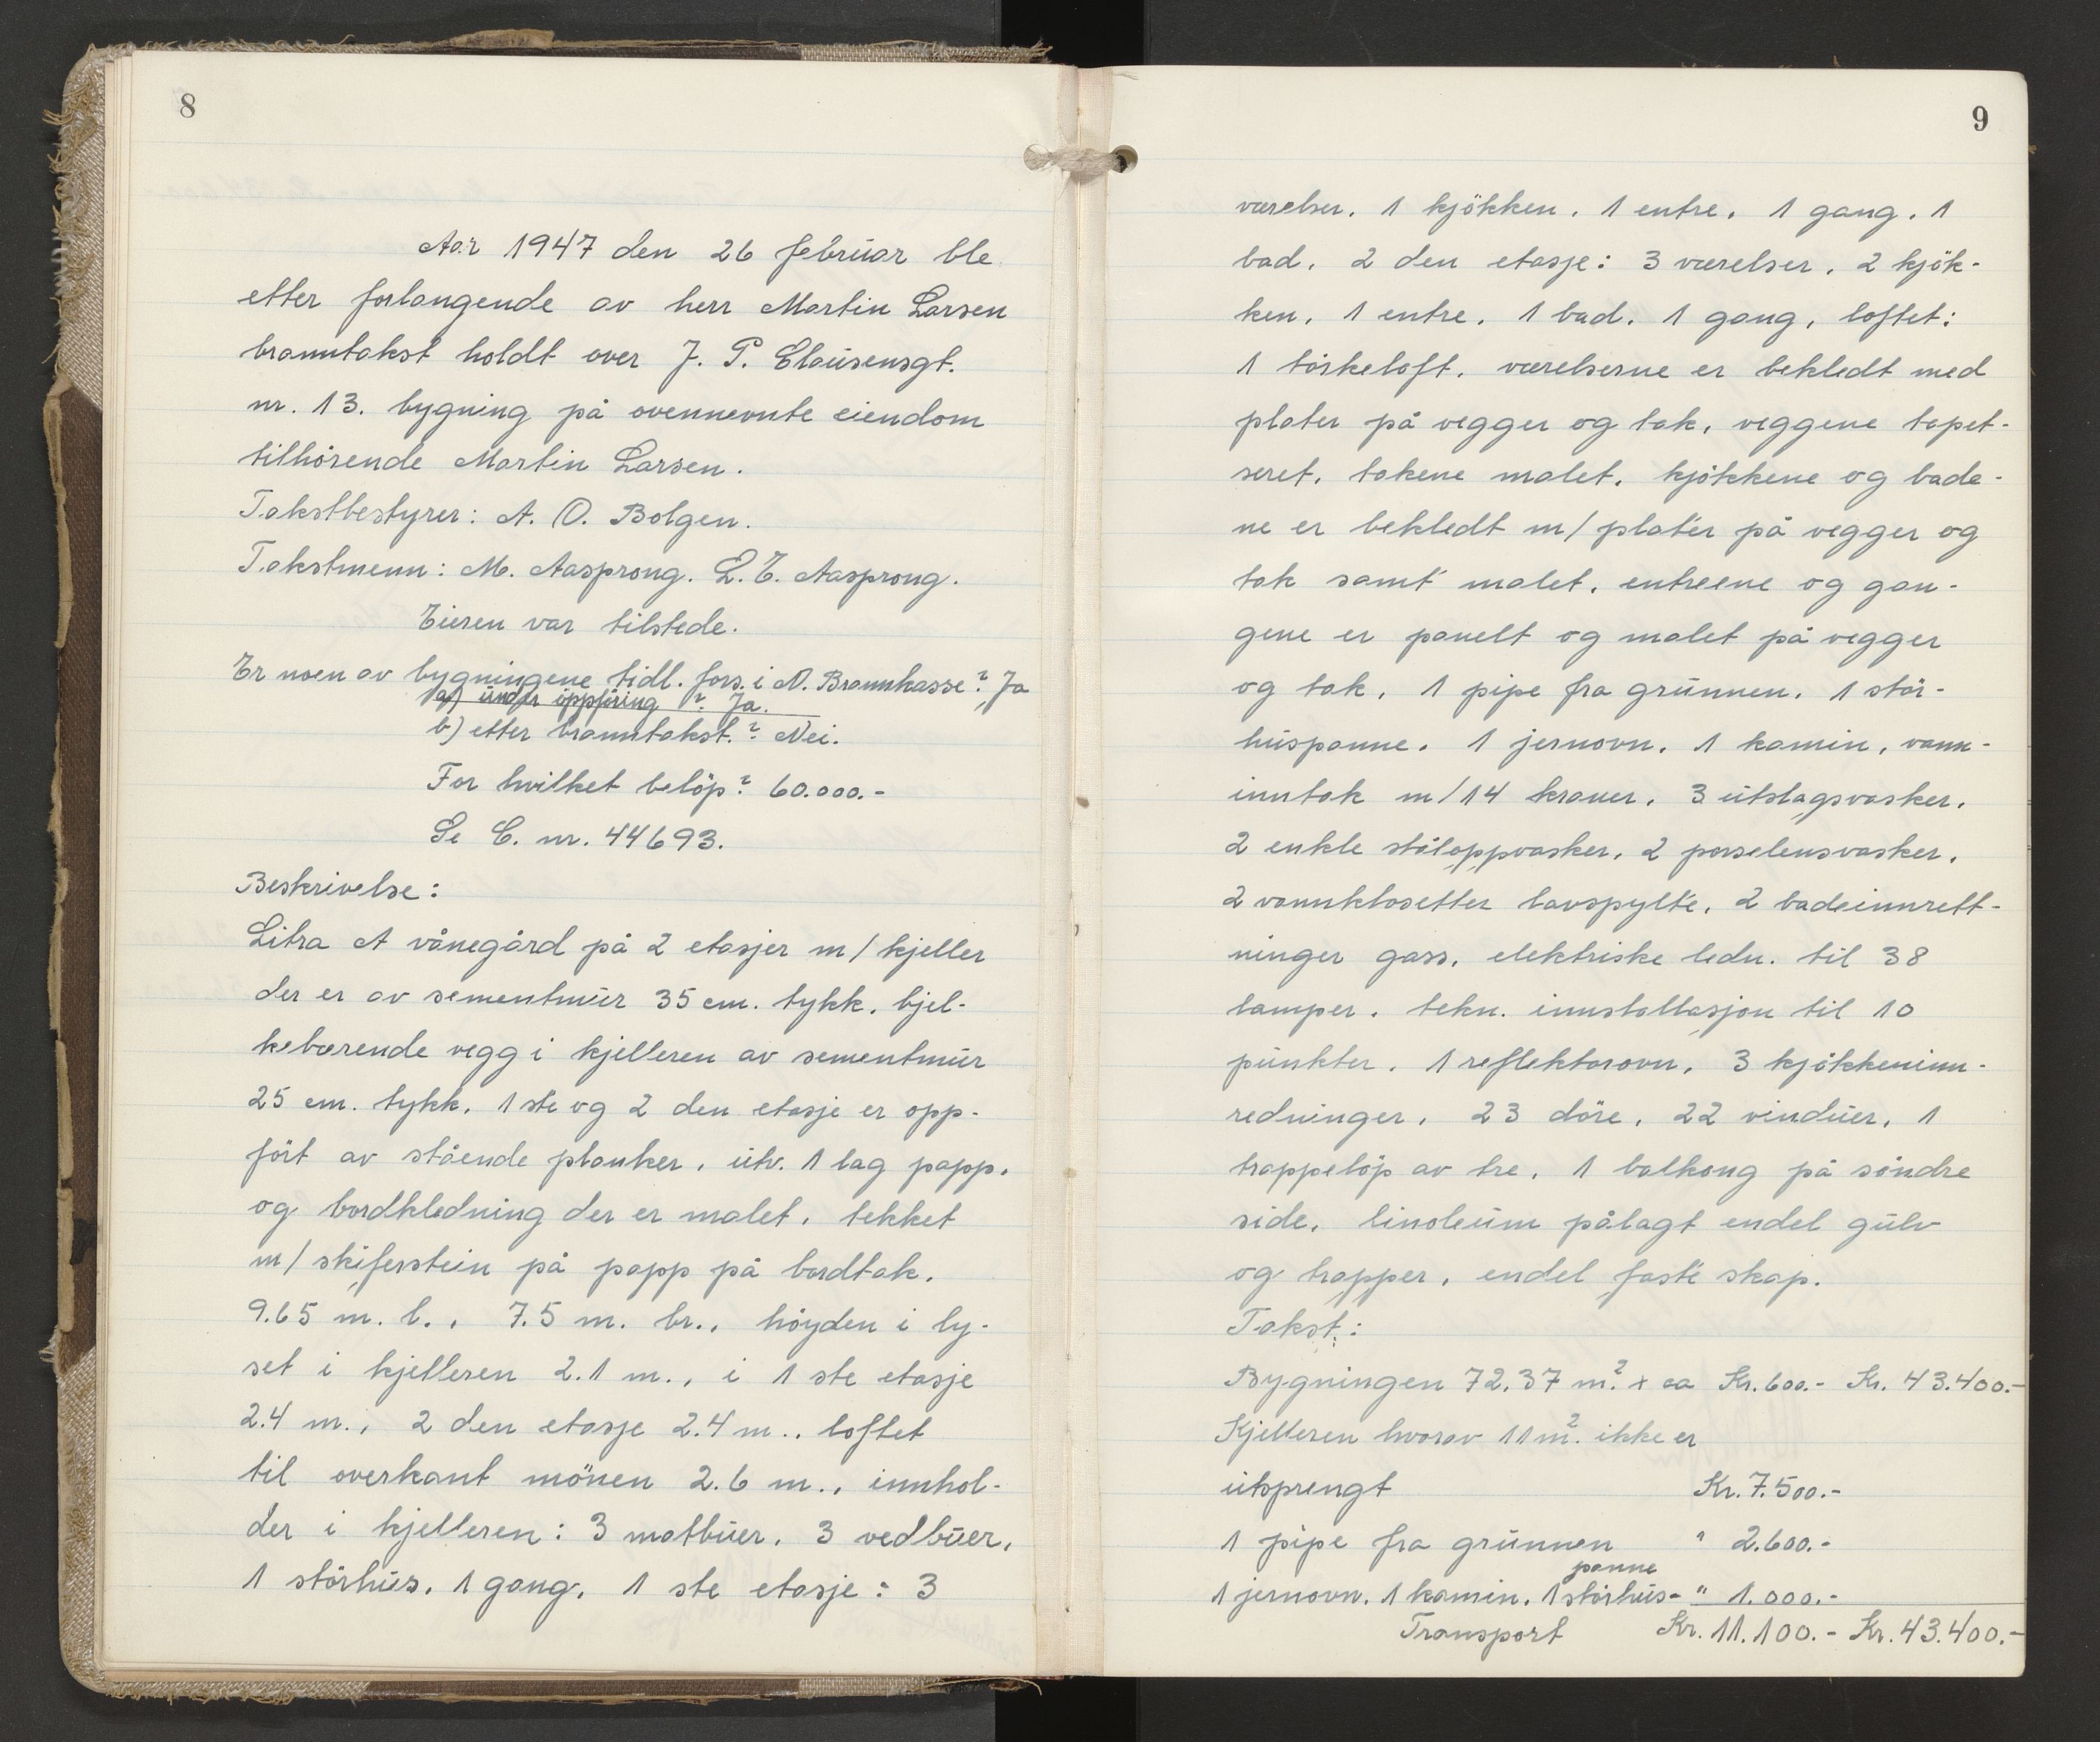 8
Aar 1947 den 26 februar ble
etter forlangende av herr Martin Larsen
branntakst holdt over J. P. Clausensgt.
nr. 13. bygning på ovennevnte eiendom
tilhörende Martin Larsen.
Takstbestyrer: A. O. Bolgen.
Takstmenn: M. Aasprong. L. E. Aasprong.
Eieren var tilstede.
Er noen av bygningene tidl. fors. i N. Brannkasse? Ja
a) under oppföring? Ja.
b) etter branntakst.? Nei.
For hvilket belöp? 60.000.-
Se C. nr. 44693.
Beskrivelse:
Litra A vånegård på 2 etasjer m/ kjeller
der er av sementmur 35 cm. tykk, bjel-
kebærende vegg i kjelleren av sementmur
25 cm. tykk, 1 ste og 2 den etasje er opp-
fört av stående planker, utv. 1 lag papp,
og bordkledning der er malet, tekket
m/ skiferstein på papp på bordtak.
9.65 m. l., 7.5 m. br., höyden i ly-
set i kjelleren 2.1 m., i 1 ste etasje
2.4 m., 2 den etasje 2.4 m., loftet
til overkant mönen 2.6 m., innhol-
der i kjelleren: 3 matbuer, 3 vedbuer,
1 störhus, 1 gang, 1 ste etasje: 3
9
værelser, 1 kjökken, 1 entre, 1 gang, 1
bad, 2 den etasje: 3 værelser, 2 kjök-
ken, 1 entre, 1 bad, 1 gang, loftet:
1 törkeloft, værelserne er bekledt med
plater på vegger og tak, veggene tapet-
seret, takene malet, kjökkene og bade-
ne er bekledt m/ plater på vegger og
tak samt malet, entreene og gan-
gene er panelt og malet på vegger
og tak, 1 pipe fra grunnen, 1 stör-
huspanne, 1 jernovn, 1 kamin, vann-
inntak m/ 14 kraner, 3 utslagsvasker,
2 enkle stäloppvasker, 2 porselensvasker,
2 vannklosetter lavspylte, 2 badeinnrett-
ninger gass, elektriske ledn. til 38
lamper, tekn. innstallasjon til 10
punkter, 1 reflektorovn, 3 kjökkeninn-
redninger, 23 döre, 22 vinduer, 1
trappelöp av tre, 1 balkong på söndre
side, linoleum pålagt endel gulv
og trapper, endel faste skap.
Takst:
Bygningen 72,37 m². x ca Kr. 600.- Kr. 43.400.-
Kjelleren hvorav 11 m². ikke er
utsprengt Kr. 7.500.-
1 pipe fra grunnen " 2.600.-
panne
1 jernovn, 1 kamin, 1 störhus- " 1.000.-
Transport Kr. 11.100.- Kr. 43.400.-